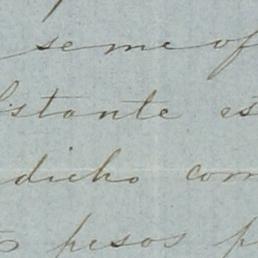 se me of
stante es
dicho com
pesos p